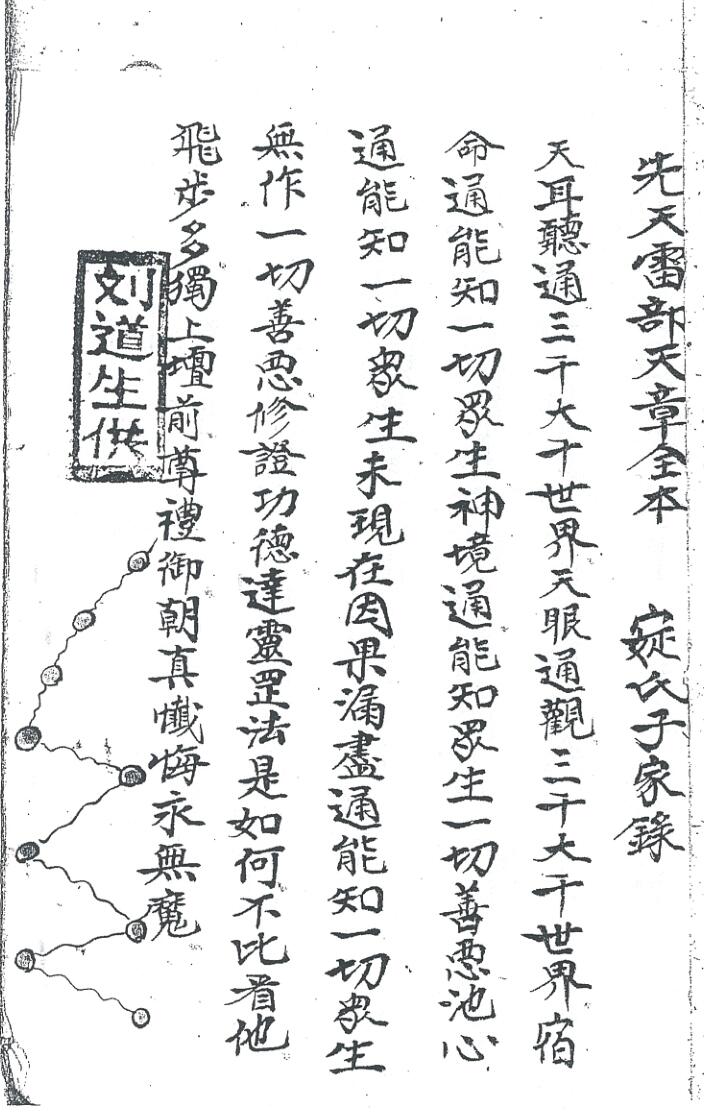 先天雷部天章全本 寇氏子家錄
天耳聽通三千大千世界天眼通觀三千大千世界宿
命通能知一切眾生神境通能知眾生一切善惡池心
通能知一切眾生未現在因果漏盡通能知一切眾生
無作一切善惡修證功德達靈罡法是如何不比看他
飛步多獨上壇前尊禮御朝真懺悔永無魔
刘道生供